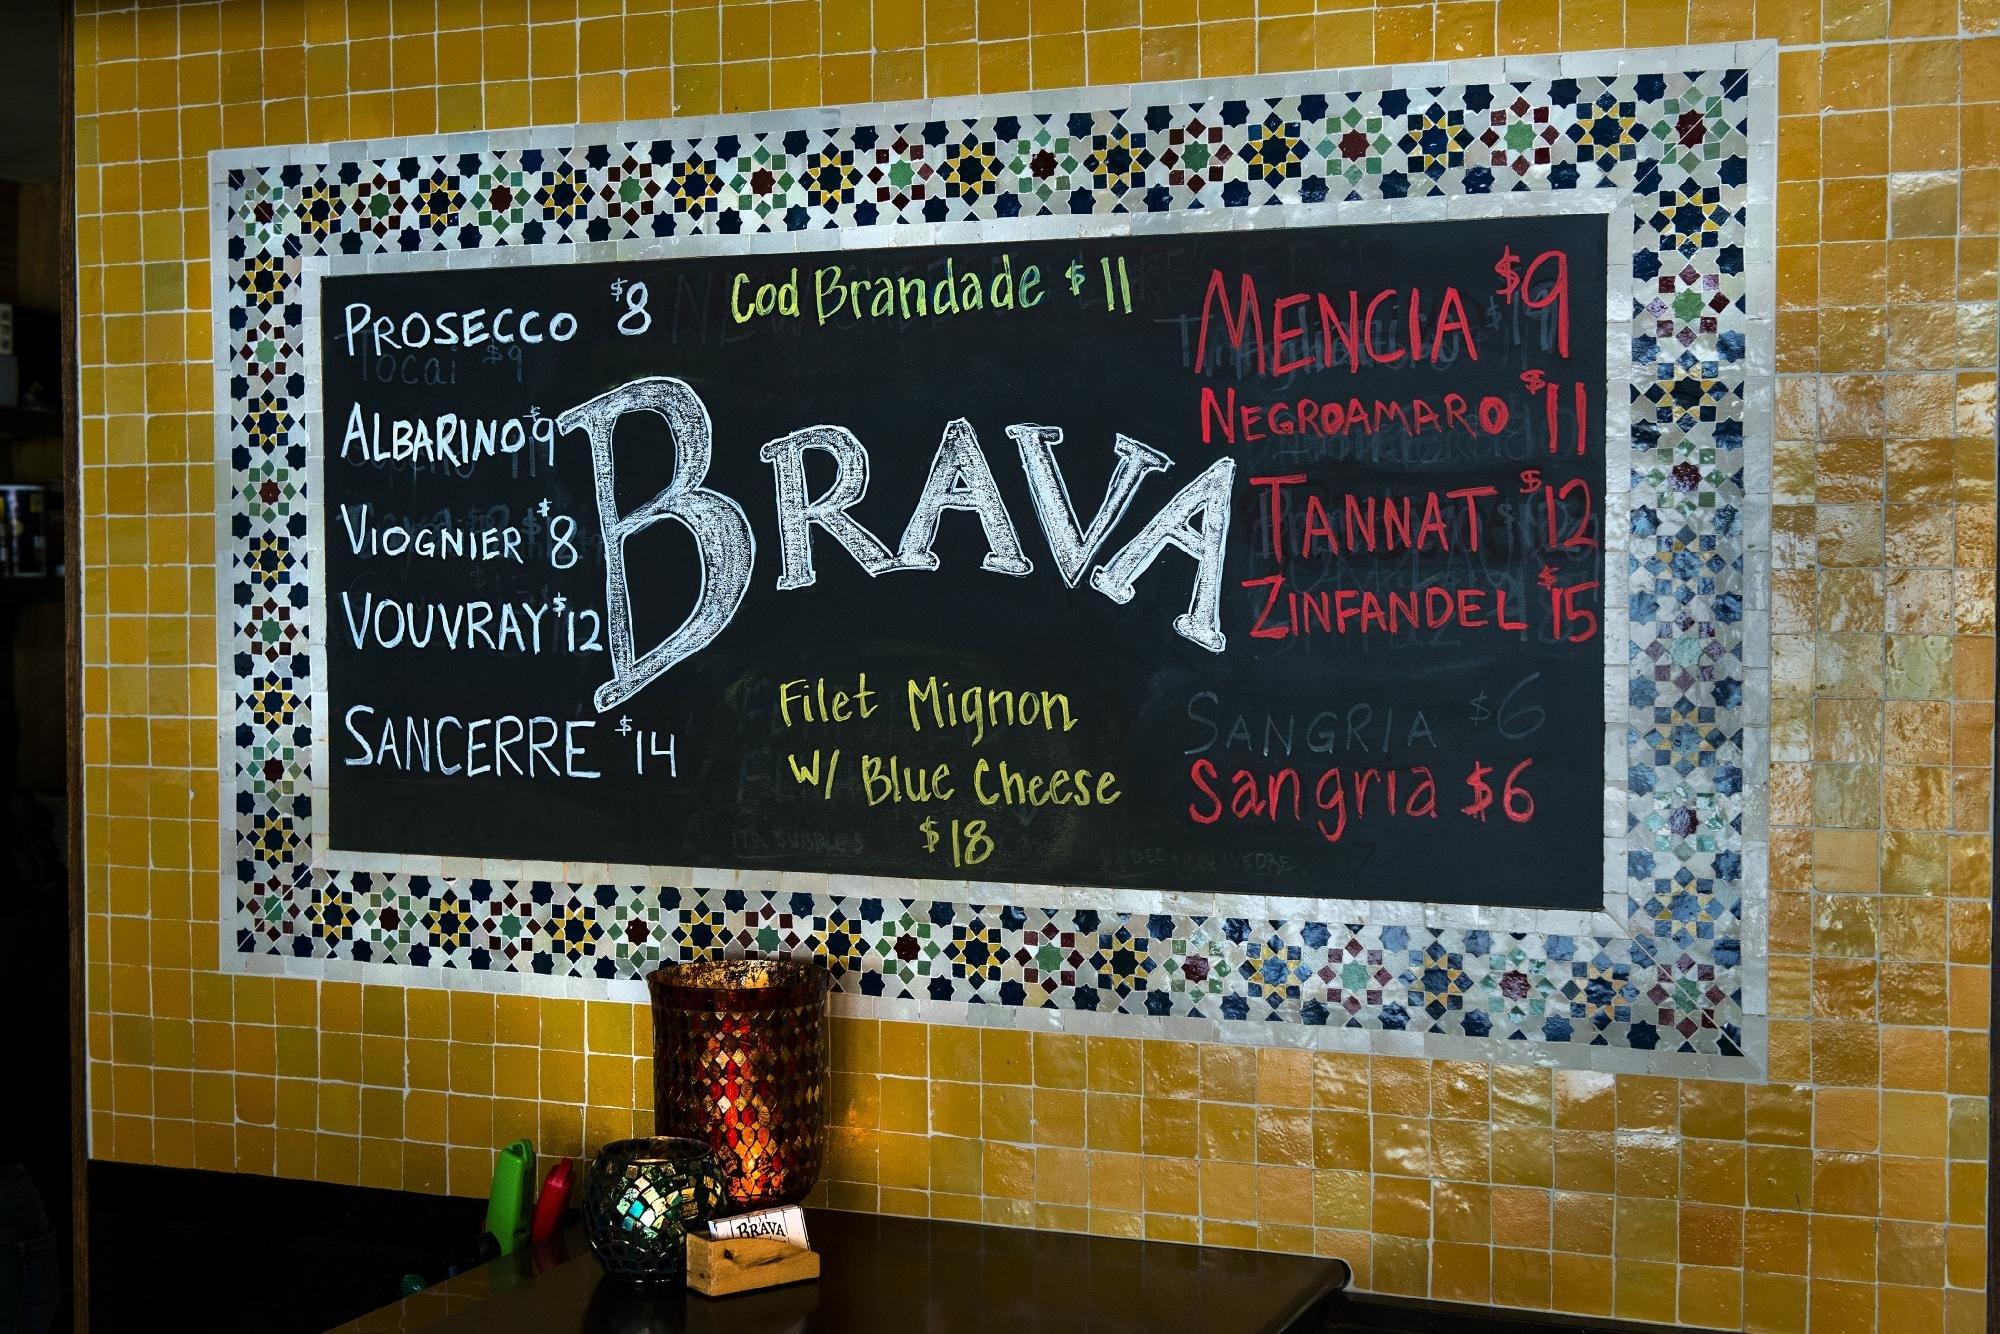 PROSECCO $8
Tocai $9
ALBARINO $9
VIOGNIER $8
VOUVRAY $12
SANCERRE $14
Cod Brandade $11
BRAVA
Filet Mignon
W/ Blue Cheese
$18
MENCIA $9
NEGROAMARO $11
TANNAT $12
ZINFANDEL $15
SANGRIA $6
Sangria $6
ITA BUBBLES
BRAVA